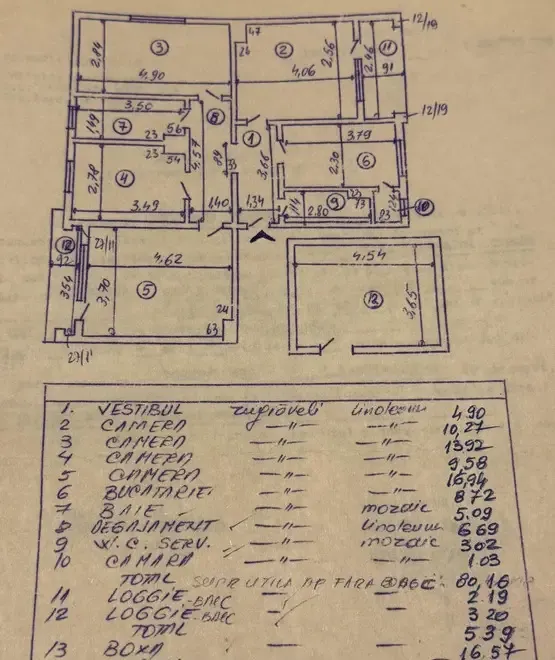 47
12/19
24
3
2
11
2,84
2,56
2,46
4,90
4,06
91
3,50
8
12/19
1,49
7
56
1
3,79
23
23
54
4,57
89
33
3,66
2,30
6
2,78
4
3,49
1,40
1,34
114
9
23
73
2,80
93
10
12
27/11
92
4,62
4,54
354
3,70
5
12
3,65
24
63
27/11
1. VESTIBUL zugrăveli linoleum 4.90
2 CAMERA —〃— —〃— 10,27
3 CAMERA —〃— —〃— 13.92
4 CAMERA —〃— —〃— 9,58
5 CAMERA —〃— —〃— 16,94
6 BUCATARIE —〃— —〃— 8 72
7 BAIE —〃— mozaic 5.09
8 DEGAJAMENT —〃— linoleum 6 69
9 W.C. SERV. —〃— mozaic 3.02
10 CAMARA —〃— —〃— 1.03
TOTAL SUPR UTILA AP FARA BALC: 80,16
11 LOGGIE-BALC — — 2.19
12 LOGGIE-BALC — — 3 20
TOTAL 5 39
13 BOXA 16.57